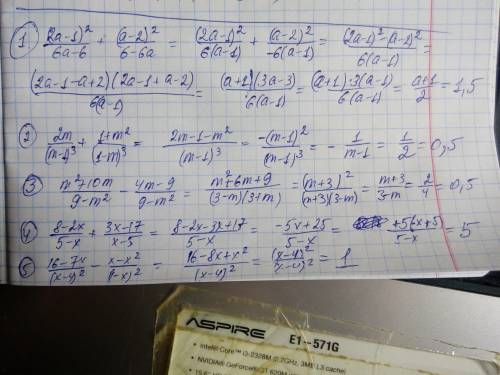 ① (2a-1)²/(6a-6) + (a-2)²/(6-6a) = (2a-1)²/(6(a-1)) + (a-2)²/(-6(a-1)) = ((2a-1)²-(a-2)²)/(6(a-1)) =
((2a-1-a+2)(2a-1+a-2))/(6(a-1)) = ((a+1)(3a-3))/(6(a-1)) = ((a+1)·3(a-1))/(6(a-1)) = (a+1)/2 = 1,5
② 2m/(m-1)³ + (1+m²)/(1-m)³ = (2m-1-m²)/(m-1)³ = -(m-1)²/(m-1)³ = -1/(m-1) = 1/2 = 0,5
③ (m²+10m)/(9-m²) - (4m-9)/(9-m²) = (m²+6m+9)/((3-m)(3+m)) = (m+3)²/((m+3)(3-m)) = (m+3)/(3-m) = 2/4 = 0,5
④ (8-2x)/(5-x) + (3x-17)/(x-5) = (8-2x-3x+17)/(5-x) = (-5x+25)/(5-x) = +5(-x+5)/(5-x) = 5
⑤ (16-7x)/(x-4)² - (x-x²)/(4-x)² = (16-8x+x²)/(x-4)² = (x-4)²/(x-4)² = 1
ASPIRE E1-571G
• Intel® Core™ i3-2328M (2.2GHz, 3MB L3 cache)